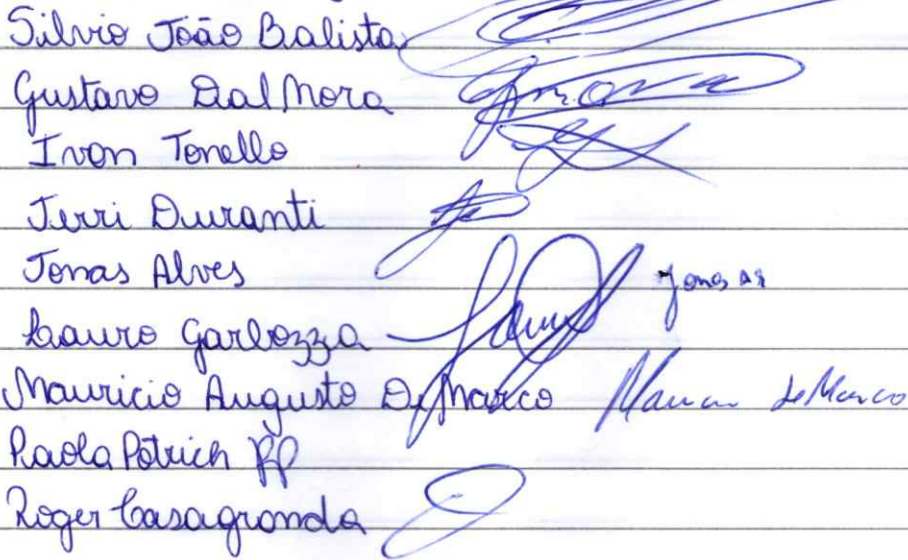 Silvio João Balista
Gustavo Dal Mora
Ivan Tonello
Jerri Duranti
Jonas Alves Jonas
Lauro Garbozza
Mauricio Augusto De Marco De Marco
Paola Potrich PP
Roger Casagranda